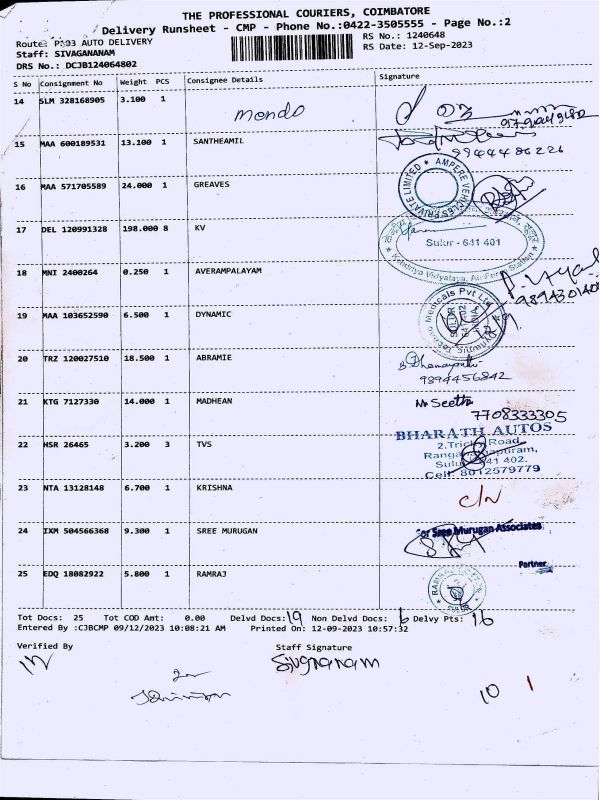 THE PROFESSIONAL COURIERS, COIMBATORE
Delivery Runsheet - CMP - Phone No.:0422-3505555 - Page No.:2
Route: P303 AUTO DELIVERY RS No.: 1240648
Staff: SIVAGANANAM RS Date: 12-Sep-2023
DRS No.: DCJB124064802
S No Consignment No Weight PCS Consignee Details Signature
14 SLM 328168905 3.100 1 mondo
15 MAA 600189531 13.100 1 SANTHEAMIL
9944486226
16 MAA 571705589 24.000 1 GREAVES AMPERE VEHICLES PRIVATE LIMITED
17 DEL 120991328 198.000 8 KV
Sulur - 641 401
18 MNI 2400264 0.250 1 AVERAMPALAYAM
19 MAA 103652590 6.500 1 DYNAMIC
20 TRZ 120027510 18.500 1 ABRAMIE
9894456842
21 KTG 7127330 14.000 1 MADHEAN Seetha
7708333305
BHARATH AUTOS
22 HSR 26465 3.200 3 TVS
Road,
Cell: 8012579779
23 NTA 13128148 6.700 1 KRISHNA C/N
24 IXM 504566368 9.300 1 SREE MURUGAN For Sree Murugan Associates
Partner
25 EDQ 18082922 5.800 1 RAMRAJ
Tot Docs: 25 Tot COD Amt: 0.00 Delvd Docs: 19 Non Delvd Docs: 6 Delvy Pts: 16
Entered By :CJBCMP 09/12/2023 10:08:21 AM Printed On: 12-09-2023 10:57:32
Verified By Staff Signature
Sivgnanam
10 1